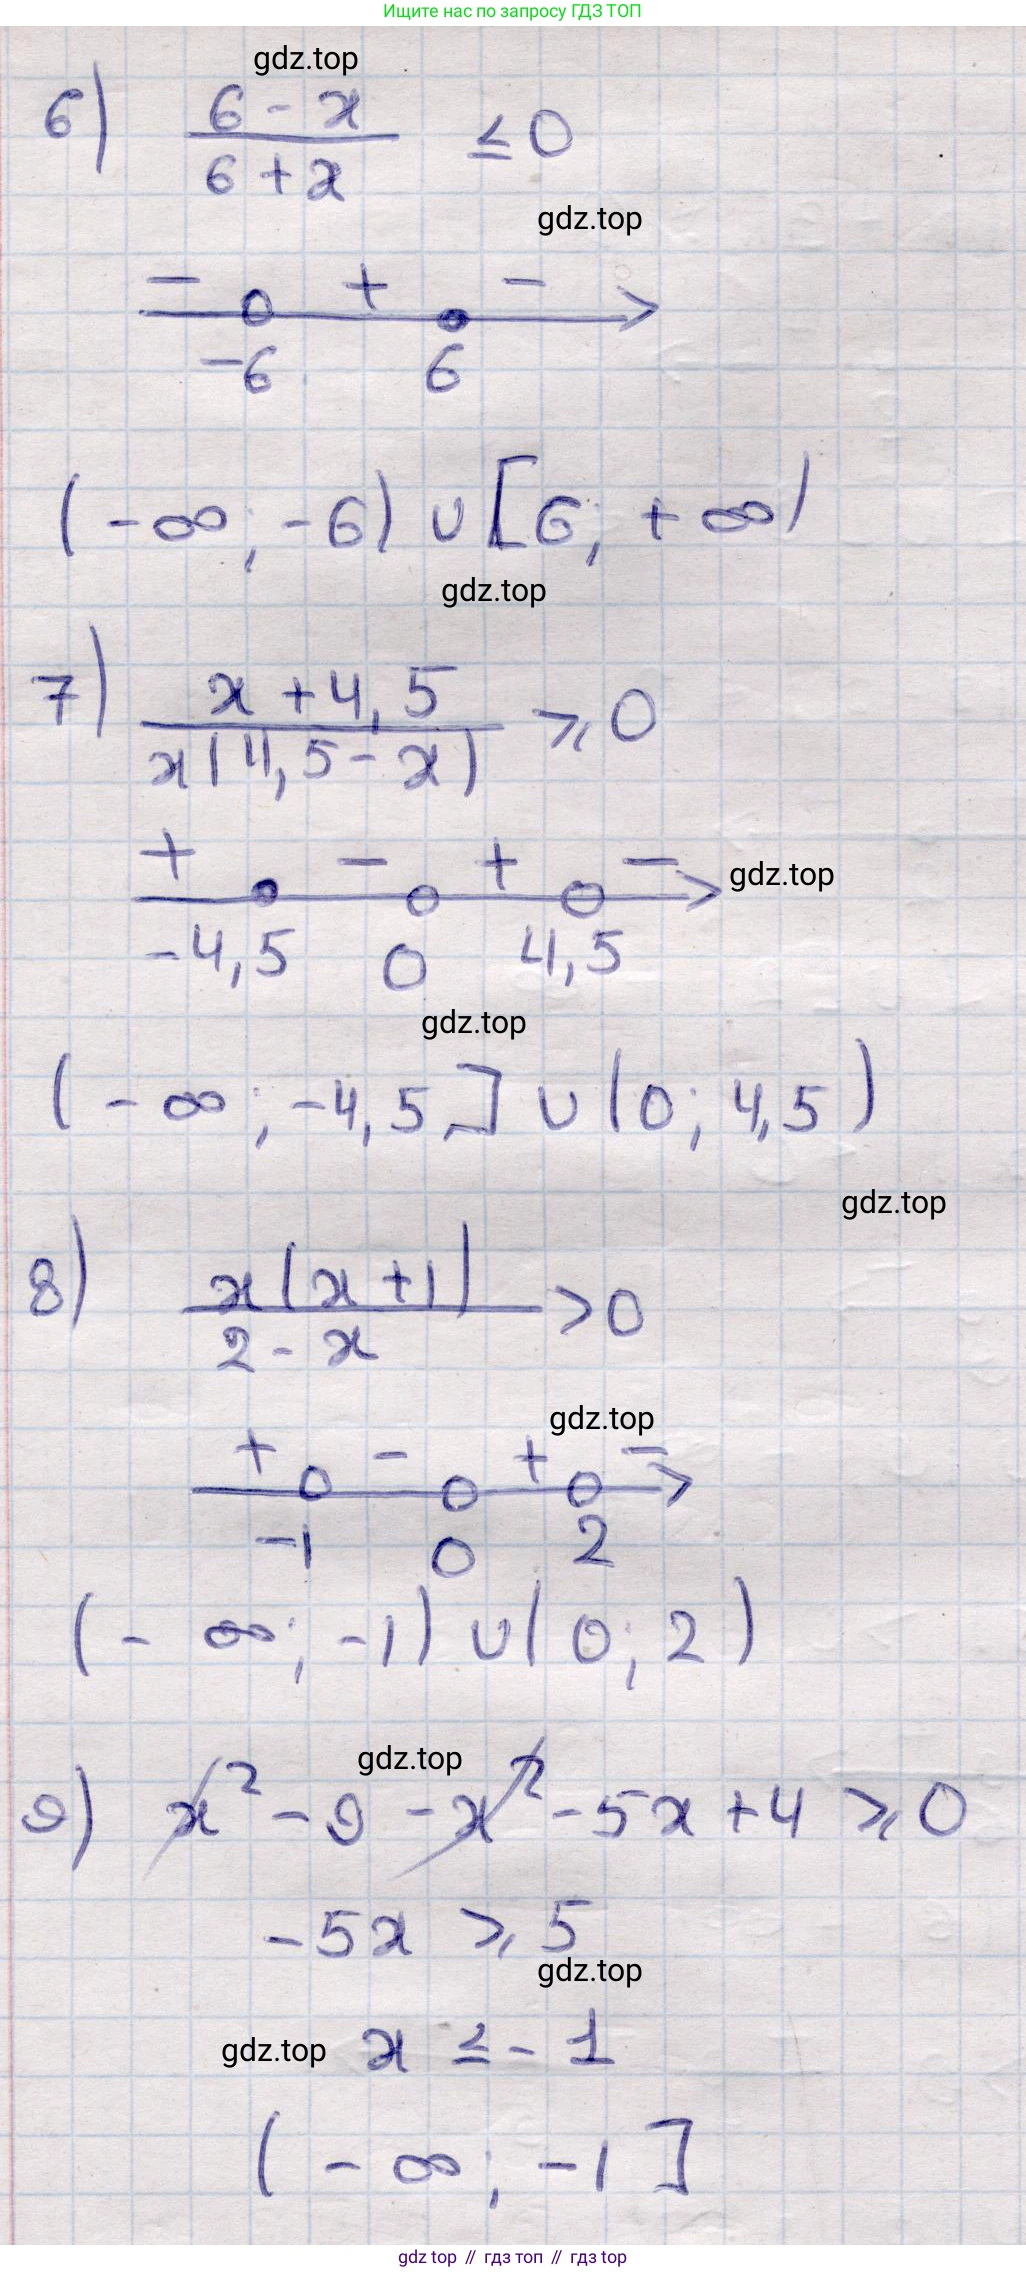 Ищите нас по запросу ГДЗ ТОП
gdz.top
6) (6 - x)/(6 + x) ≤ 0
gdz.top
- + -
-6 6
(-∞; -6) ∪ [6; +∞)
gdz.top
7) (x + 4,5)/(x(4,5 - x)) ≥ 0
+ - + -
gdz.top
-4,5 0 4,5
gdz.top
(-∞; -4,5] ∪ (0; 4,5)
gdz.top
8) (x(x + 1))/(2 - x) > 0
gdz.top
+ - + -
-1 0 2
(-∞; -1) ∪ (0; 2)
gdz.top
9) x² - 9 - x² - 5x + 4 ≥ 0
-5x ≥ 5
gdz.top
gdz.top
x ≤ -1
(-∞; -1]
gdz top // гдз топ // гдз top